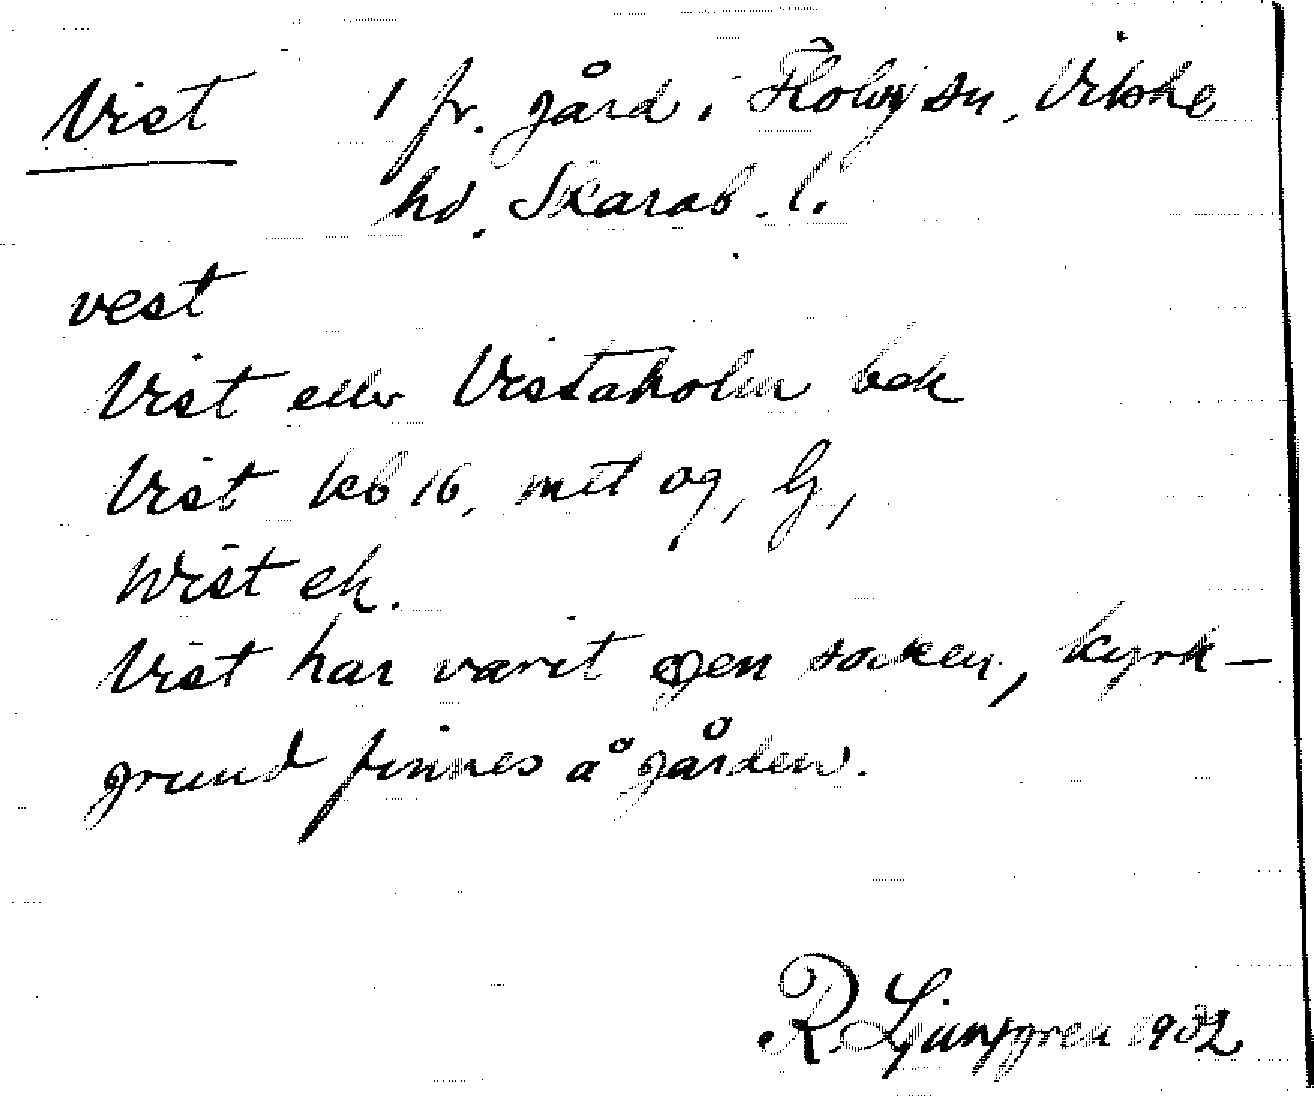 Vist 1 fr. gård i Floby sn, Vilske
hd. Skarab. l.
vest
Vist eller Vistaholm bek
Vist kb 16, mtl og, G,
Wist ek.
Vist har varit egen socken, kyrk-
grund finnes å gården.
R. Ljunggren 1902